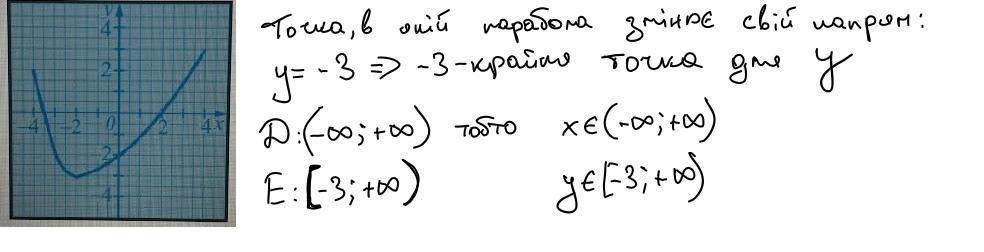 y
4
2
-4 -2 0 2 4 x
-2
4
Точка, в якій парабола змінює свій напрям:
y = -3 => -3 - крайня точка для y
D: (-∞; +∞) тобто x ∈ (-∞; +∞)
E: [-3; +∞) y ∈ [-3; +∞)